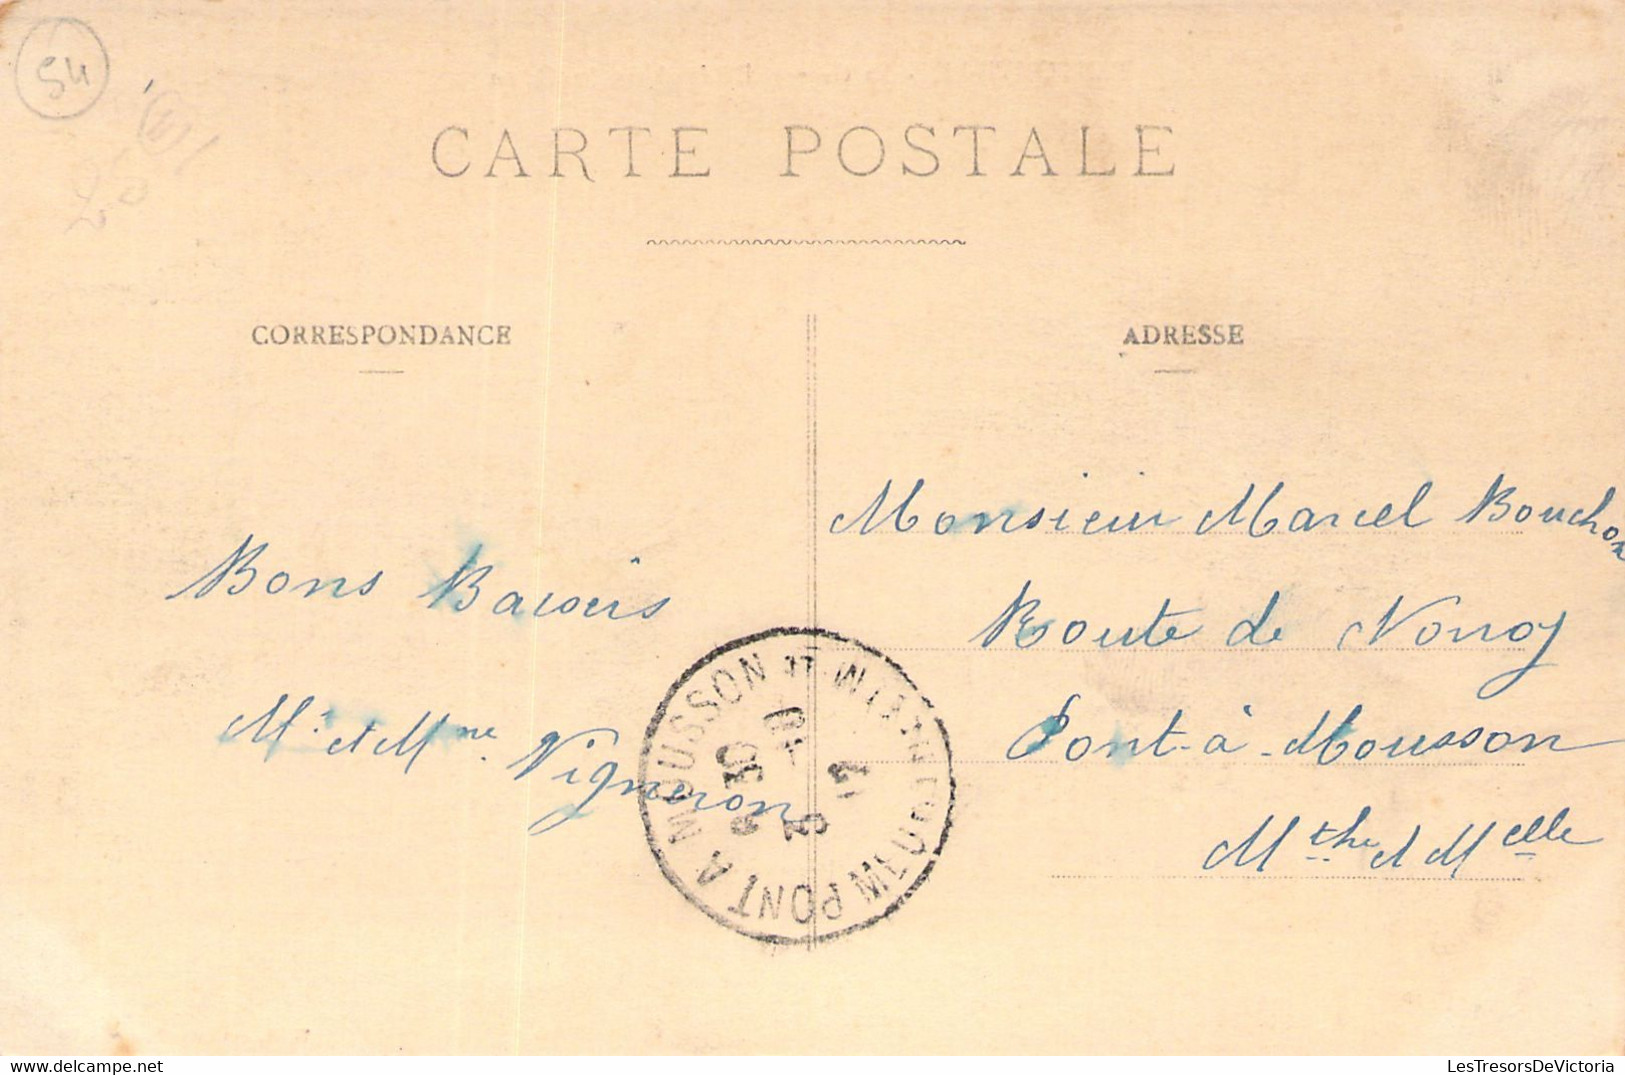 54
CARTE POSTALE
CORRESPONDANCE
ADRESSE
Bons Baisers
Mr. et Mme. Vigneron
Monsieur Marcel Bouchon
Route de Norroy
Pont-à-Mousson
Mthe et Melle
PONT A MOUSSON
MEURTHE ET M-LLE
LesTresorsDeVictoria